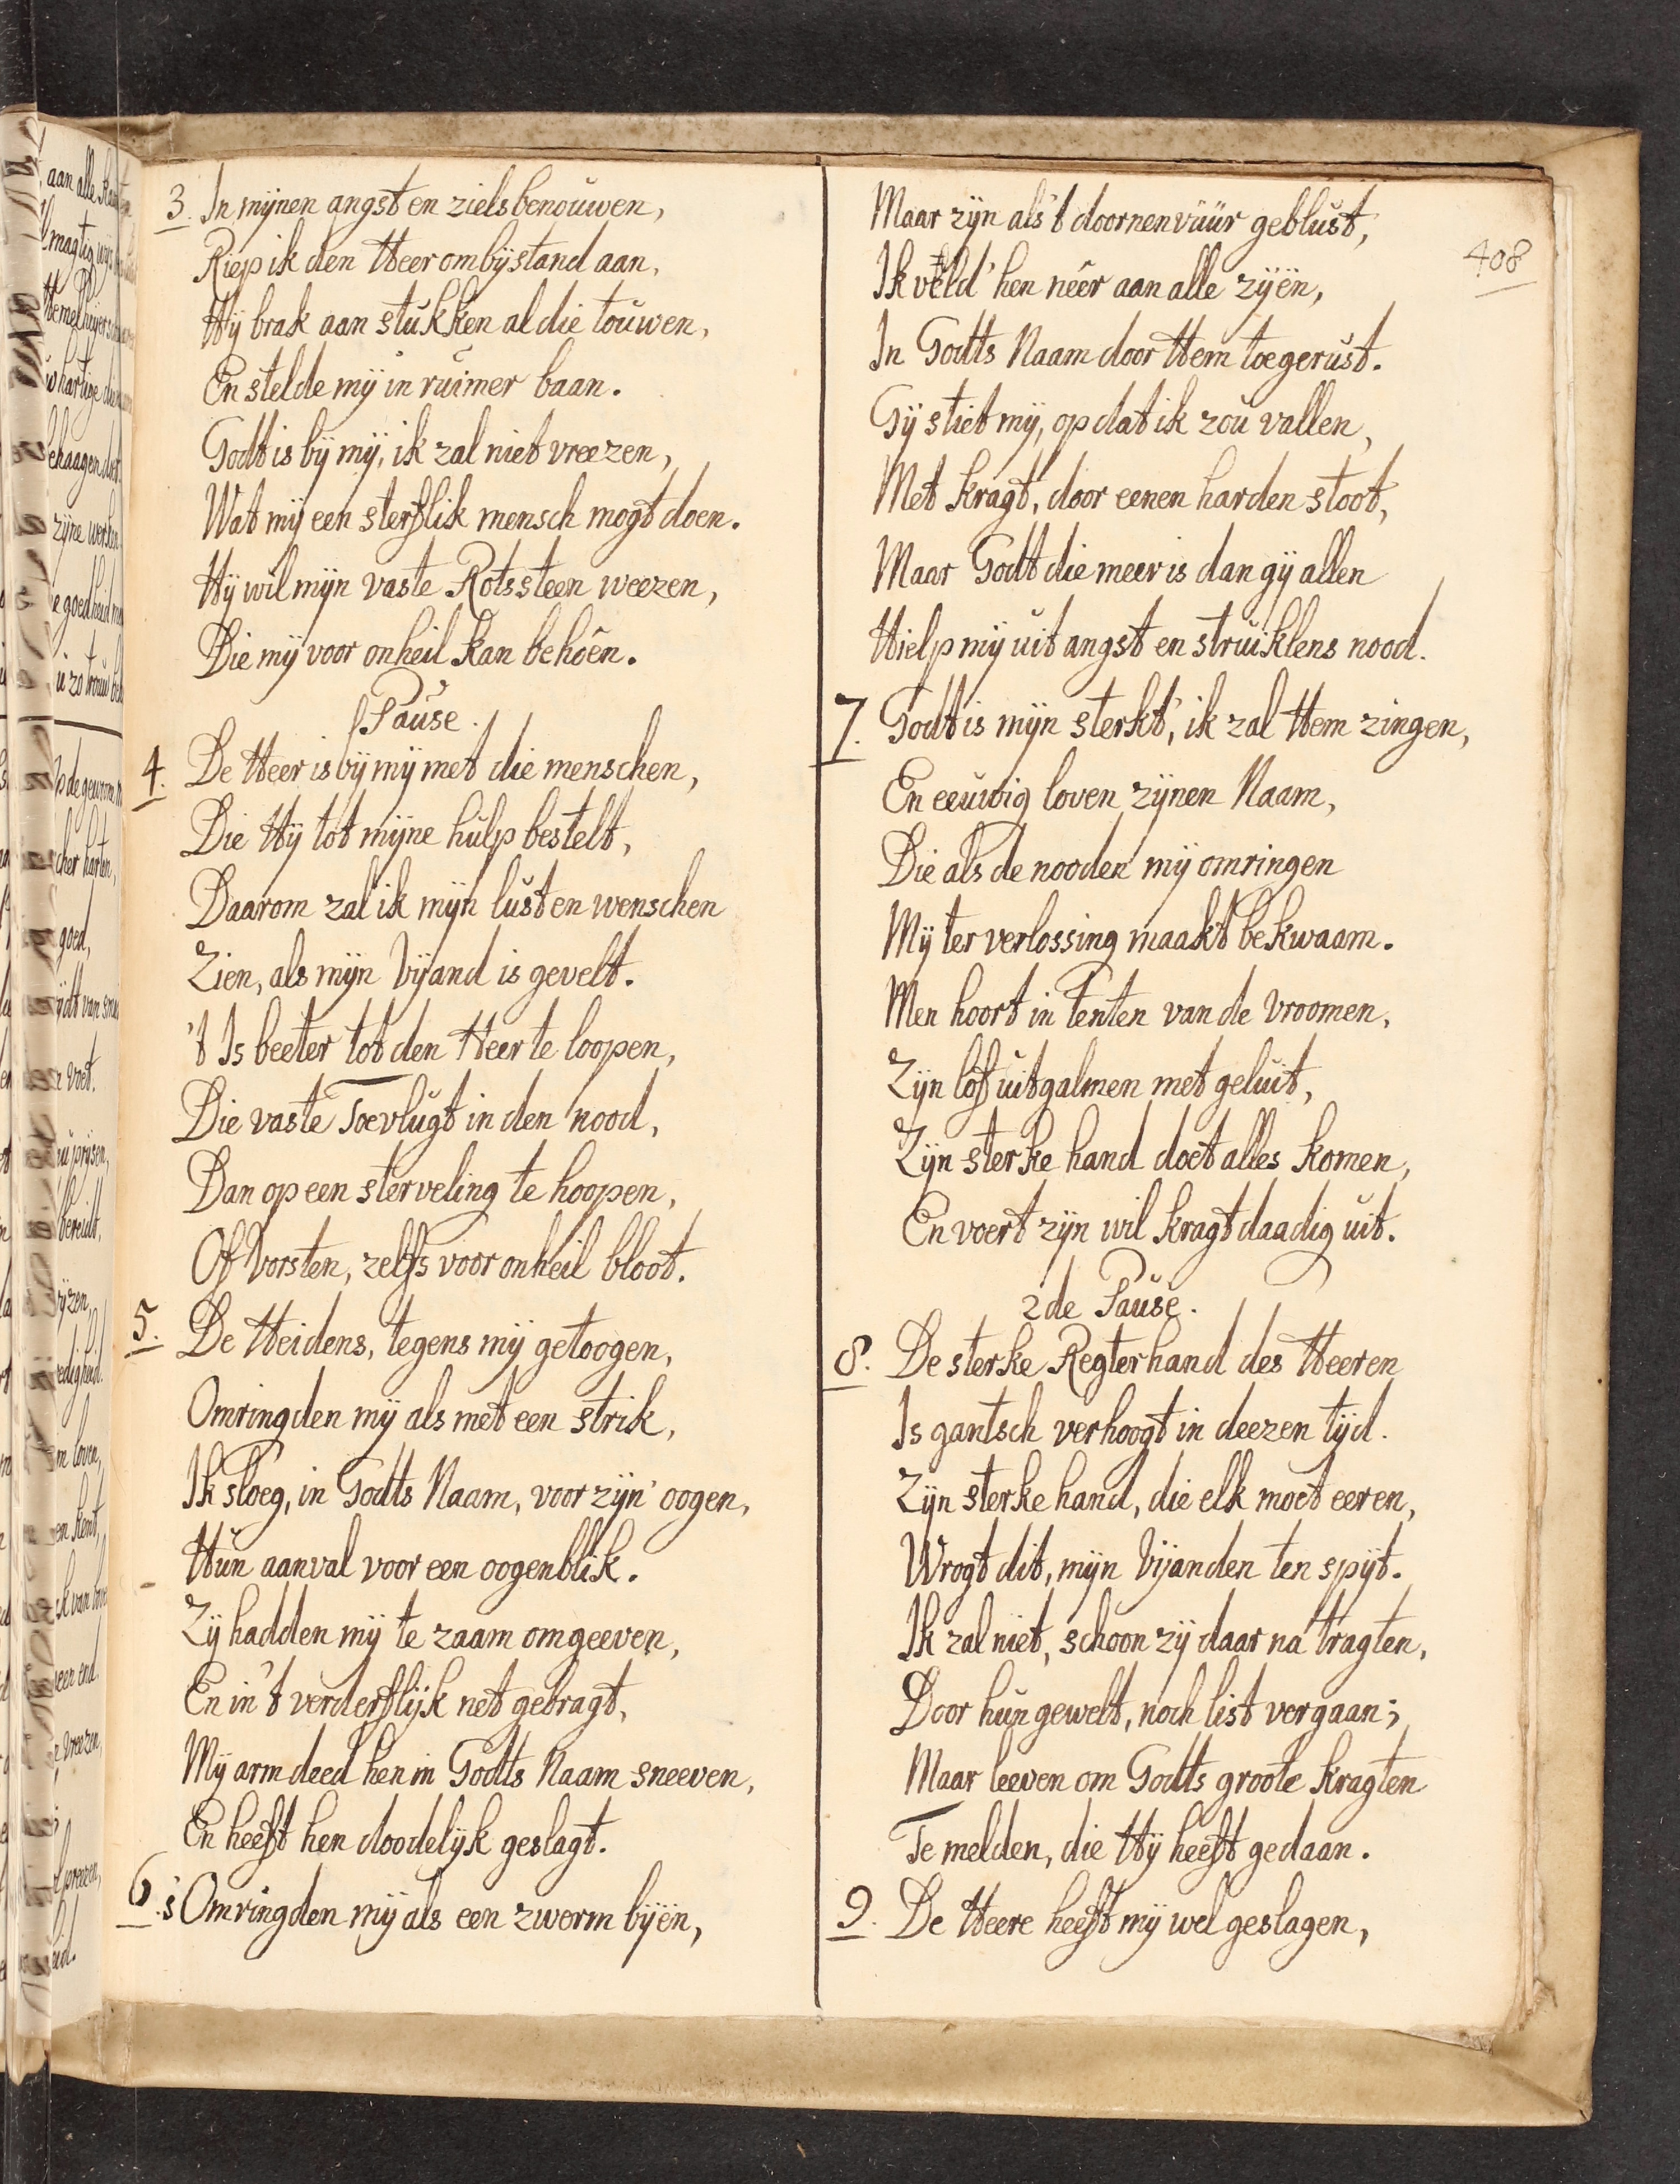 3. In mijnen angst en zielsbenouwen,
Riep ik den Heer om bijstand aan,
Hij brak aan stukken al die touwen,
En stelde mij in ruimer baan.
Godt is bij mij, ik zal niet vreezen,
Wat mij een sterflik mensch mogt doen.
Hij wil mijn vaste Rotssteen weezen,
Die mij voor onheil kan behoên.
Pause.
4. De Heer is bij mij met die menschen,
Die Hij tot mijne hulp bestelt,
Daarom zal ik mijn lust en wenschen
Zien, als mijn Vijand is gevelt.
't Is beeter tot den Heer te loopen,
Die vaste Toevlugt in den nood,
Dan op een sterveling te hoopen,
Of Vorsten, zelfs voor onheil bloot.
5. De Heidens, tegens mij getoogen,
Omringden mij als met een strik,
Ik sloeg, in Godts Naam, voor zijn' oogen,
Hun aanval voor een oogenblik.
Zij hadden mij te zaam omgeeven,
En in 't verderflijk net gebragt,
Mij arm deed hen in Godts Naam sneeven,
En heeft hen doodelijk geslagt.
6. s' Omringden mij als een zwerm bijën,
Maar zijn als 't doornenvuur geblust,
Ik veld' hen nêer aan alle zijën,
In Godts Naam door Hem toegerust.
Gij stiet mij, op dat ik zou vallen,
Met kragt, door eenen harden stoot,
Maar Godt die meer is dan gij allen
Hielp mij uit angst en struiklens nood.
7. Godt is mijn sterkt', ik zal Hem zingen,
En eeuwig loven zijnen Naam,
Die als de nooden mij omringen
Mij ter verlossing maakt bekwaam.
Men hoort in Tenten van de vroomen,
Zijn lof uitgalmen met geluit,
Zijn sterke hand doet alles komen,
En voert zijn wil kragtdaadig uit.
2de Pause.
8. De sterke Regterhand des Heeren
Is gantsch verhoogt in deezen tijd.
Zijn sterke hand, die elk moet eeren,
Wrogt dit, mijn Vijanden ten spijt.
Ik zal niet, schoon zij daar na tragten,
Door hun gewelt, noch list vergaan;
Maar leeven om Godts groote kragten
Te melden, die Hij heeft gedaan.
9. De Heere heeft mij wel geslagen,
408